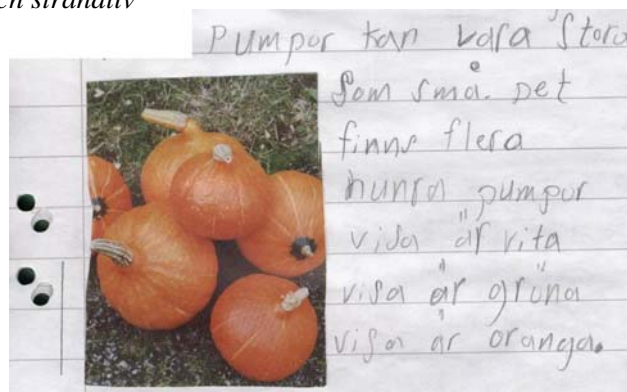 och strandliv
Pumpor kan vara stora
som små. Det
finns flera
hunra pumpor
visa är vita
visa är gröna
visa är oranga.